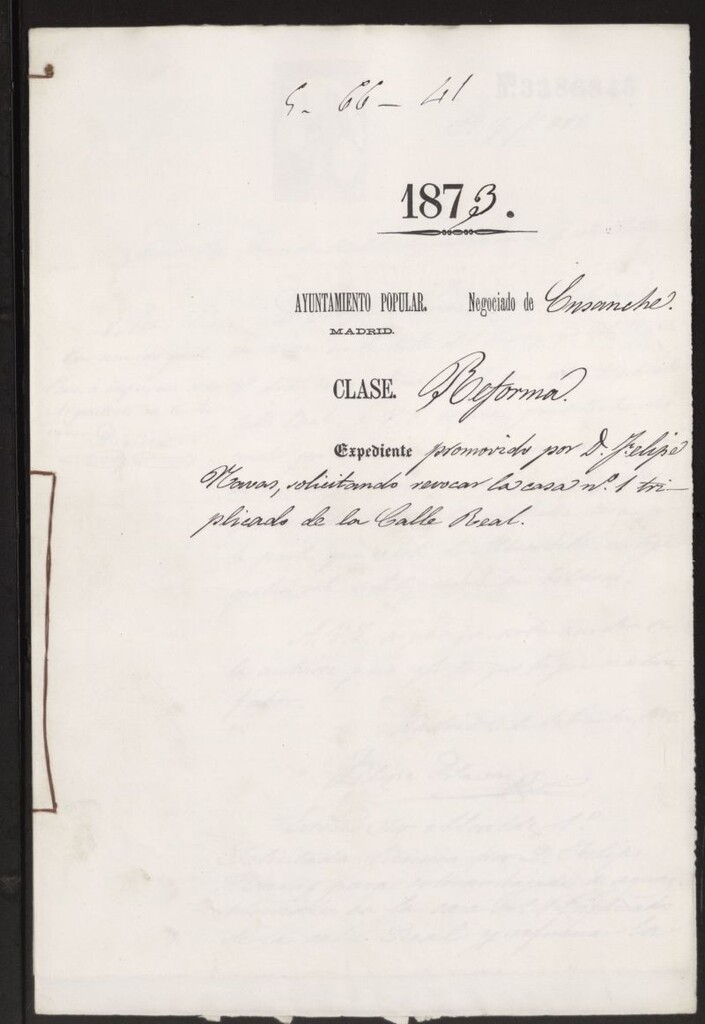 5-66-41
1873.
AYUNTAMIENTO POPULAR. Negociado de Ensanche.
MADRID.
CLASE. Reforma.
Expediente promovido por D. Felipe
Navas, solicitando revocar la casa nº. 1 tri-
plicado de la Calle Real.